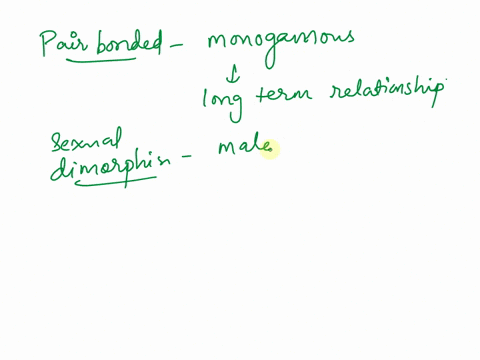 Pair bonded - monogamous
↓
long term relationship
Sexual
dimorphism - male